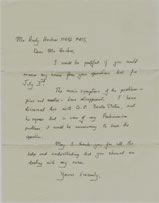 Mrs Judy Gordon MRCP MRCS,
Dear Mrs Gordon,
I would be grateful if you would
remove my name from your operation list for
July 3rd.
The main symptoms of the problem -
pins and needles - have disappeared. I have
discussed this with G.P.
and he agrees that in view of my Parkinsonian
problem it would be unnecessary to have the
operation.
May I thank you for all the
time and understanding that you showed on
dealing with my case.
Yours sincerely,